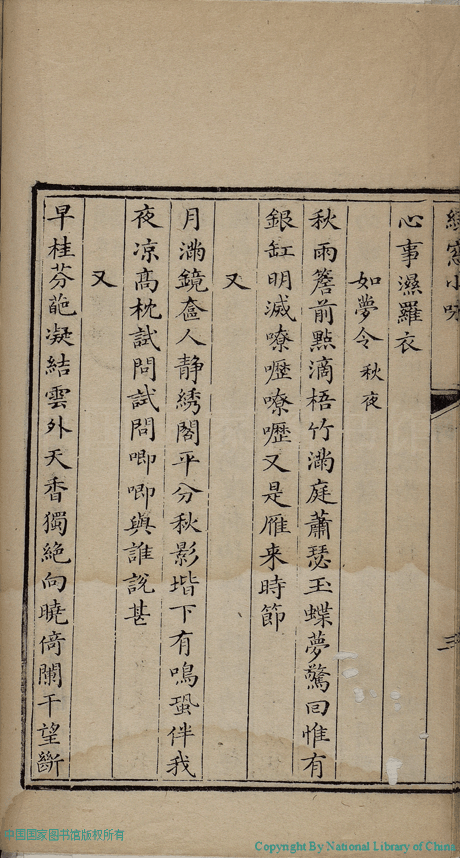 心事濕羅衣
如夢令 秋夜
秋雨簷前點滴梧竹滿庭蕭瑟玉蝶夢驚回惟有
銀缸明滅嘹嚦嘹嚦又是雁来時節
又
月滿鏡奩人靜綉閣平分秋影堦下有鳴蛩伴我
夜凉高枕試問試問唧唧與誰説甚
又
早桂芬葩凝結雲外天香獨絶向曉倚闌干望斷
三
中国国家图书馆版权所有
Copyright By National Library of China